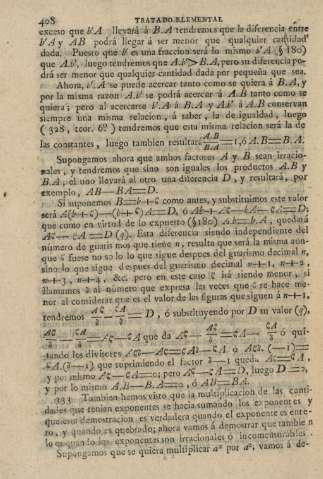 408 TRATADO ELEMENTAL
exceso que b'A llevará á B.A tendremos que la diferencia entre
b'A y AB podrá llegar á ser menor que qualquier cantidad
dada. Puesto que b' es una fraccion será lo mismo b'A (§ 180)
que A.b', luego tendremos que A.b' B.A, pero su diferencia po-
drá ser menor que qualquier cantidad dada por pequeña que sea.
Ahora, b'.A se puede acercar tanto como se quiera á B.A, y
por la misma razon A.b' se podrá acercar á A.B tanto como se
quiera; pero al acercarse b'.A á B.A y Ab' á A.B conservan
siempre una misma relacion, á saber, la de igualdad, luego
(328, teor. 6º) tendremos que esta misma relacion será la de
las constantes, luego tambien resultará A.B/B.A=1, ó A.B=B.A.
Supongamos ahora que ambos factores A y B sean irracio-
nales, y tendremos que sino son iguales los productos A.B y
B.A; el uno llevará al otro una diferencia D, y resultará, por
exemplo, AB—BA=D.
Si suponemos B=b+ como antes, y substituimos este valor
será
que como en virtud de lo expuesto (§180) Ab=bA, quedará
Esta diferencia siendo independiente del
número de guarismos que tiene n, resulta que será la misma aun-
que fuese no solo lo que sigue despues del guarismo decimal n,
sino lo que sigue despues del guarismo decimal n+1, n+2,
n+3, n+4, &c. pero en este caso irá siendo menor, si
llamamos δ al número que expresa las veces que se hace me-
nor al considerar que es el valor de las figuras que siguen á n+1,
tendremos = D, ó substituyendo por D su valor
que da ó qui-
tando los divisores
que suprimiendo el factor δ—1 queda
y por lo mismo pero luego D=0,
y por lo mismo A.B—B.A=0, ó AB=BA.
333 Tambien hemos visto que la multiplicacion de las canti-
dades que tenian exponentes se hacia sumando los exponentes y
que esto demostracion es verdadera quando el exponente es ente-
ro, y quando es quebrado; ahora vamos á demostrar que tambien
lo es quando los exponentes son irracionales ó incomensurables.
Supongamos que se quiera multiplicar por vamos á de-